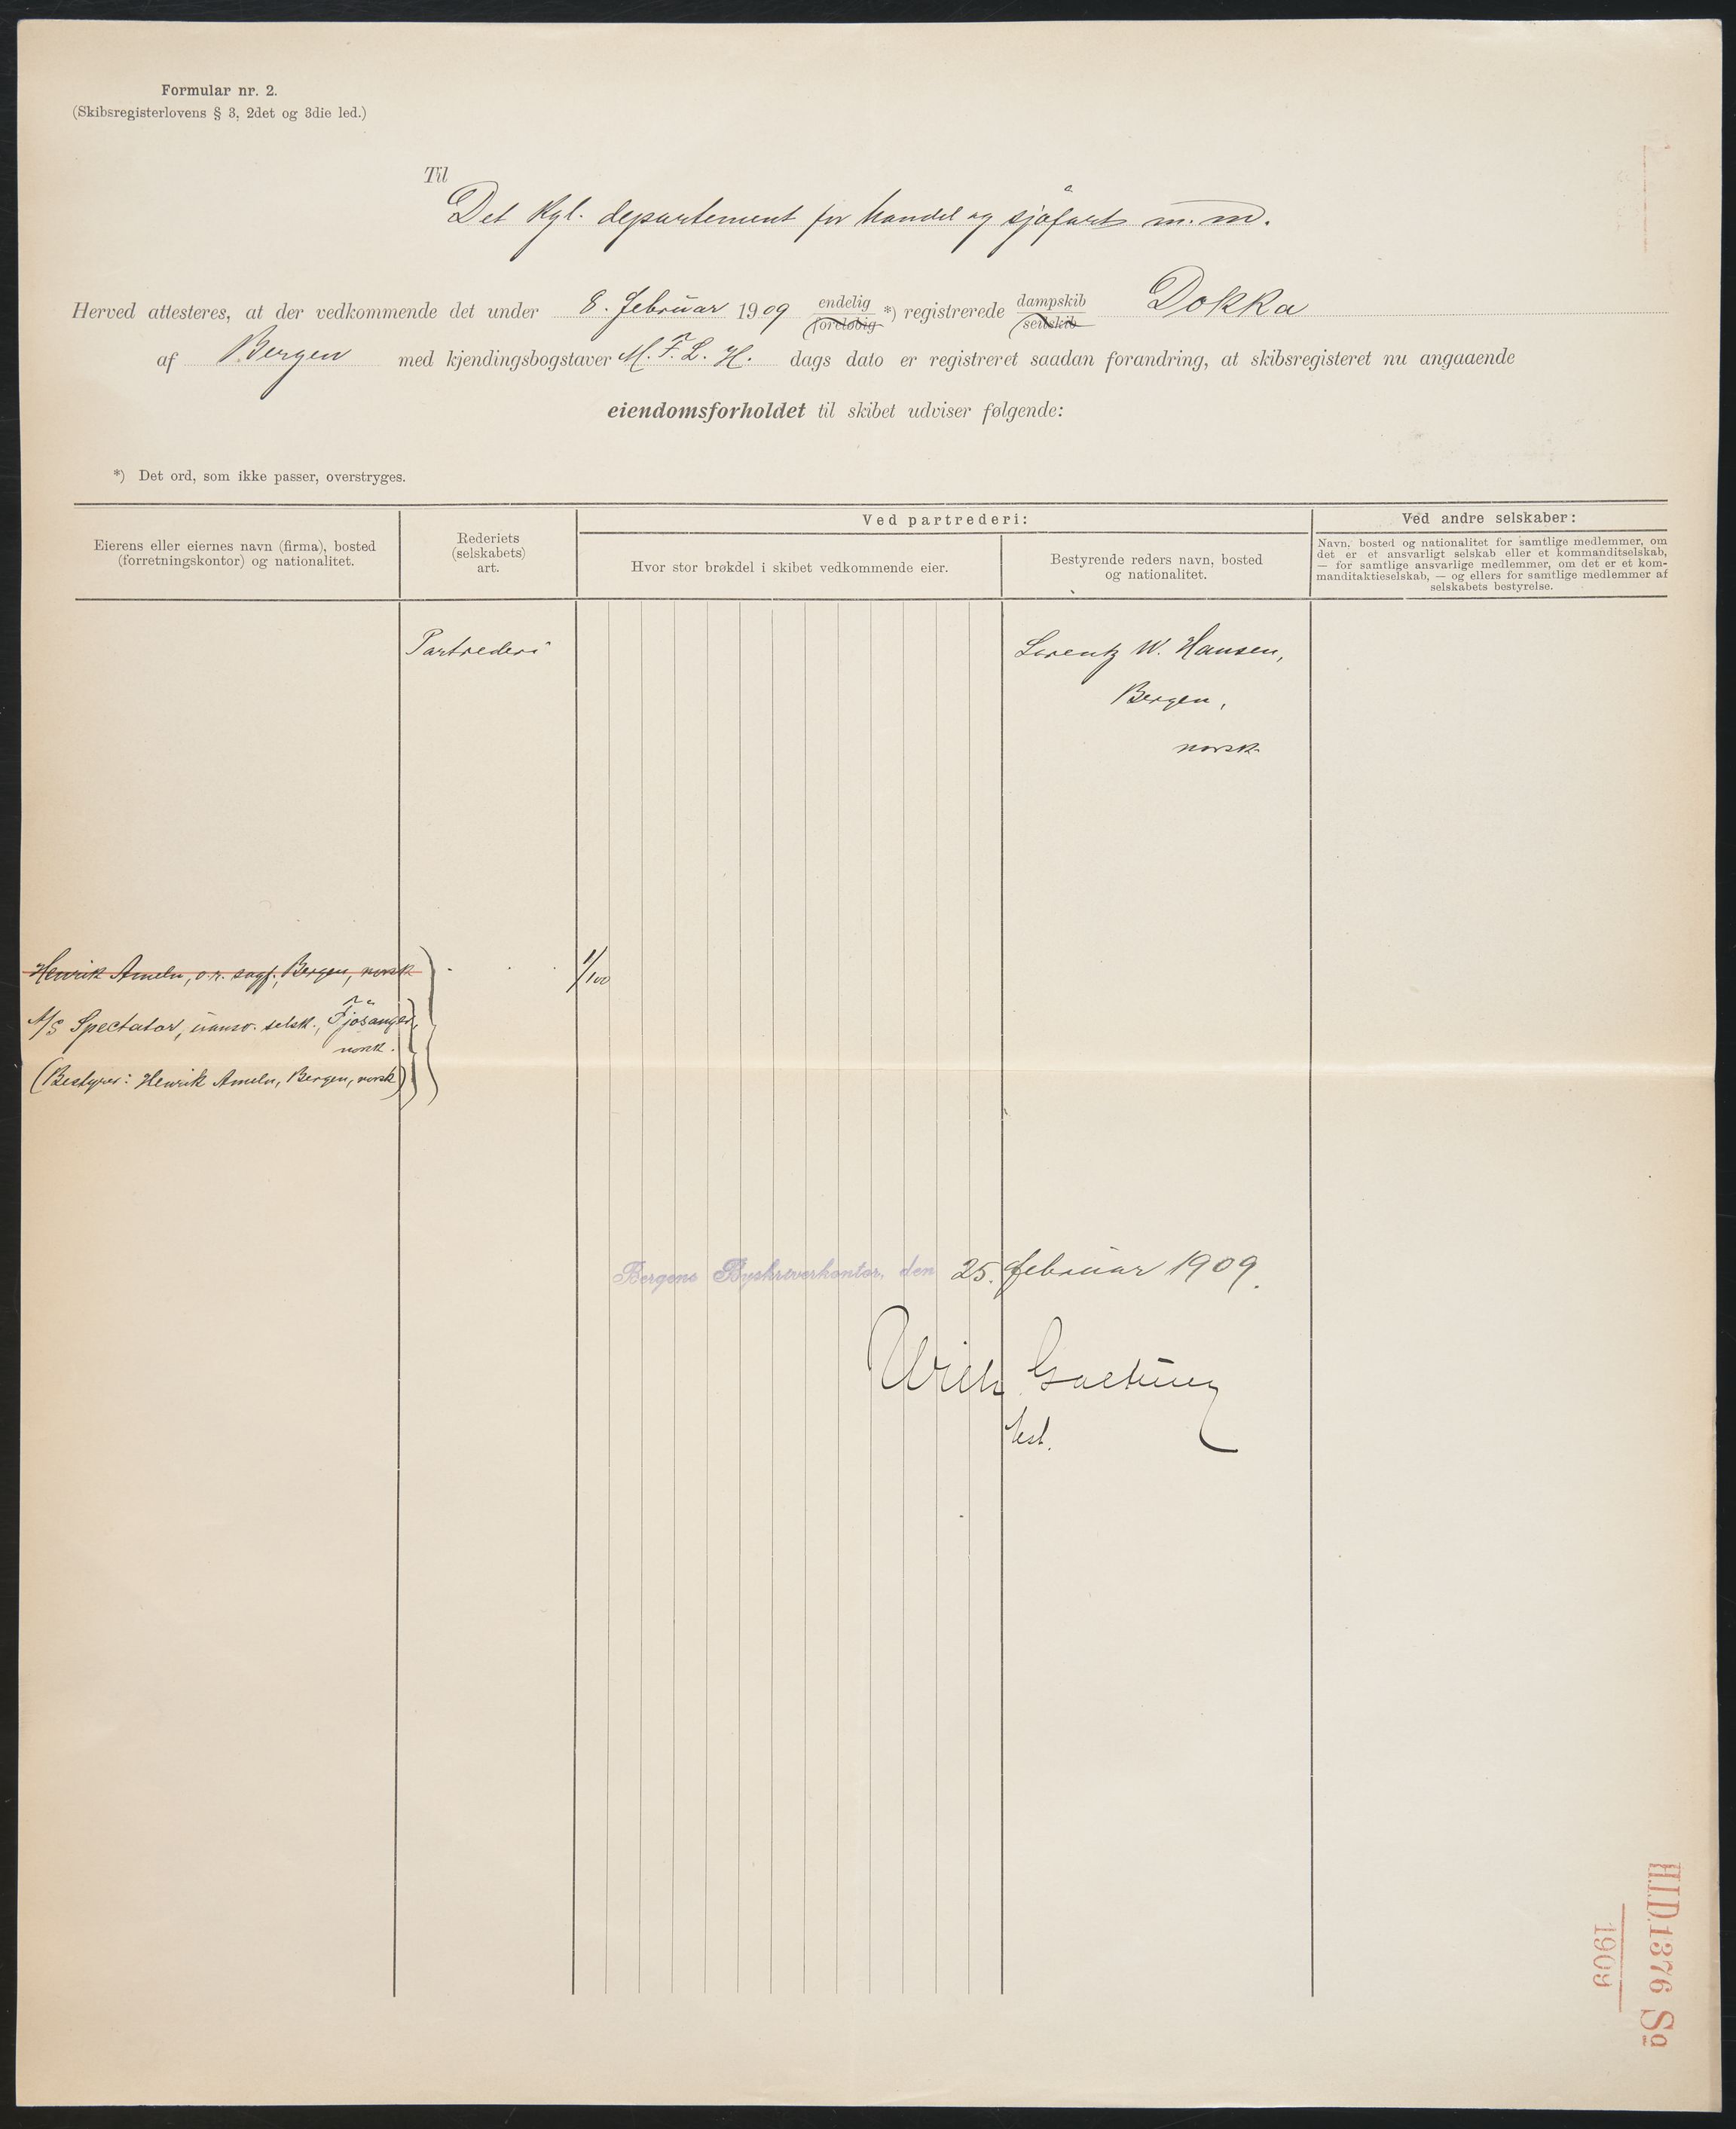 Formular nr. 2.
(Skibsregisterlovens § 3, 2det og 3die led.)
Til
Det Kgl. departement for handel og sjøfart m. m.
Herved attesteres, at der vedkommende det under 8. februar 1909 endelig foreløbig *) registrerede dampskib seilskib Dokka
af Bergen med kjendingsbogstaver M. F. L. H. dags dato er registreret saadan forandring, at skibsregisteret nu angaaende
eiendomsforholdet til skibet udviser følgende:
*) Det ord, som ikke passer, overstryges.
Eierens eller eiernes navn (firma), bosted
(forretningskontor) og nationalitet.
Rederiets
(selskabets)
art.
Ved partrederi:
Hvor stor brøkdel i skibet vedkommende eier.
Bestyrende reders navn, bosted
og nationalitet.
Ved andre selskaber:
Navn, bosted og nationalitet for samtlige medlemmer, om
det er et ansvarligt selskab eller et kommanditselskab,
— for samtlige ansvarlige medlemmer, om det er et kom-
manditaktieselskab, — og ellers for samtlige medlemmer af
selskabets bestyrelse.
Partrederi
Lorentz W. Hansen,
Bergen,
norsk
Henrik Ameln, o.r. sagf., Bergen, norsk
1/100
A/S Spectator, uansv. selsk., Fjøsanger,
norsk.
(Bestyrer: Henrik Ameln, Bergen, norsk)
Bergens Byskriverkontor, den 25. februar 1909.
Wilh
H.I.D. 1376 Sa
1909